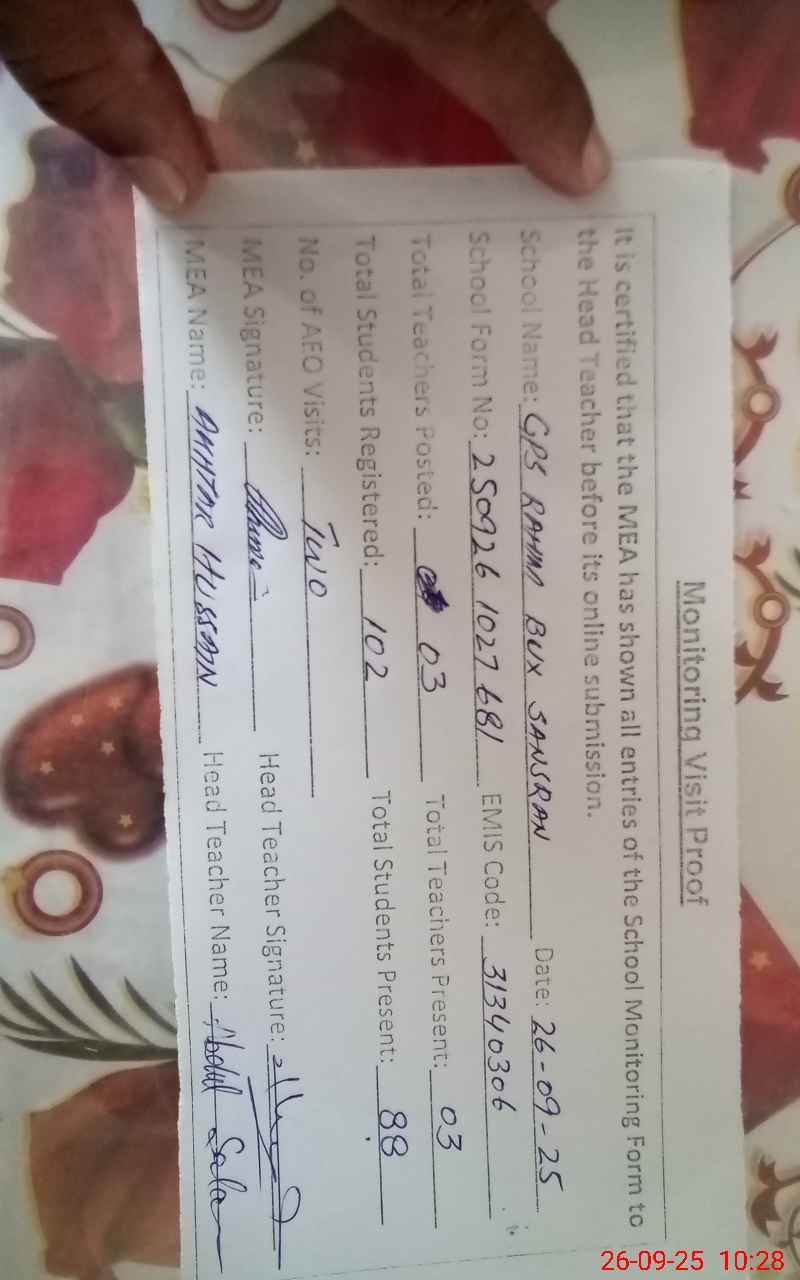 Monitoring Visit Proof
It is certified that the MEA has shown all entries of the School Monitoring Form to
the Head Teacher before its online submission.
School Name: GPS RAHIM BUX SANSRAN Date: 26-09-25
School Form No: 250926 1027681 EMIS Code: 31340306
Total Teachers Posted: 03 Total Teachers Present: 03
Total Students Registered: 102 Total Students Present: 88
No. of AEO Visits: Two
MEA Signature: Head Teacher Signature:
MEA Name: AKHTAR HUSSAIN Head Teacher Name: Abdul Sala
26-09-25 10:28